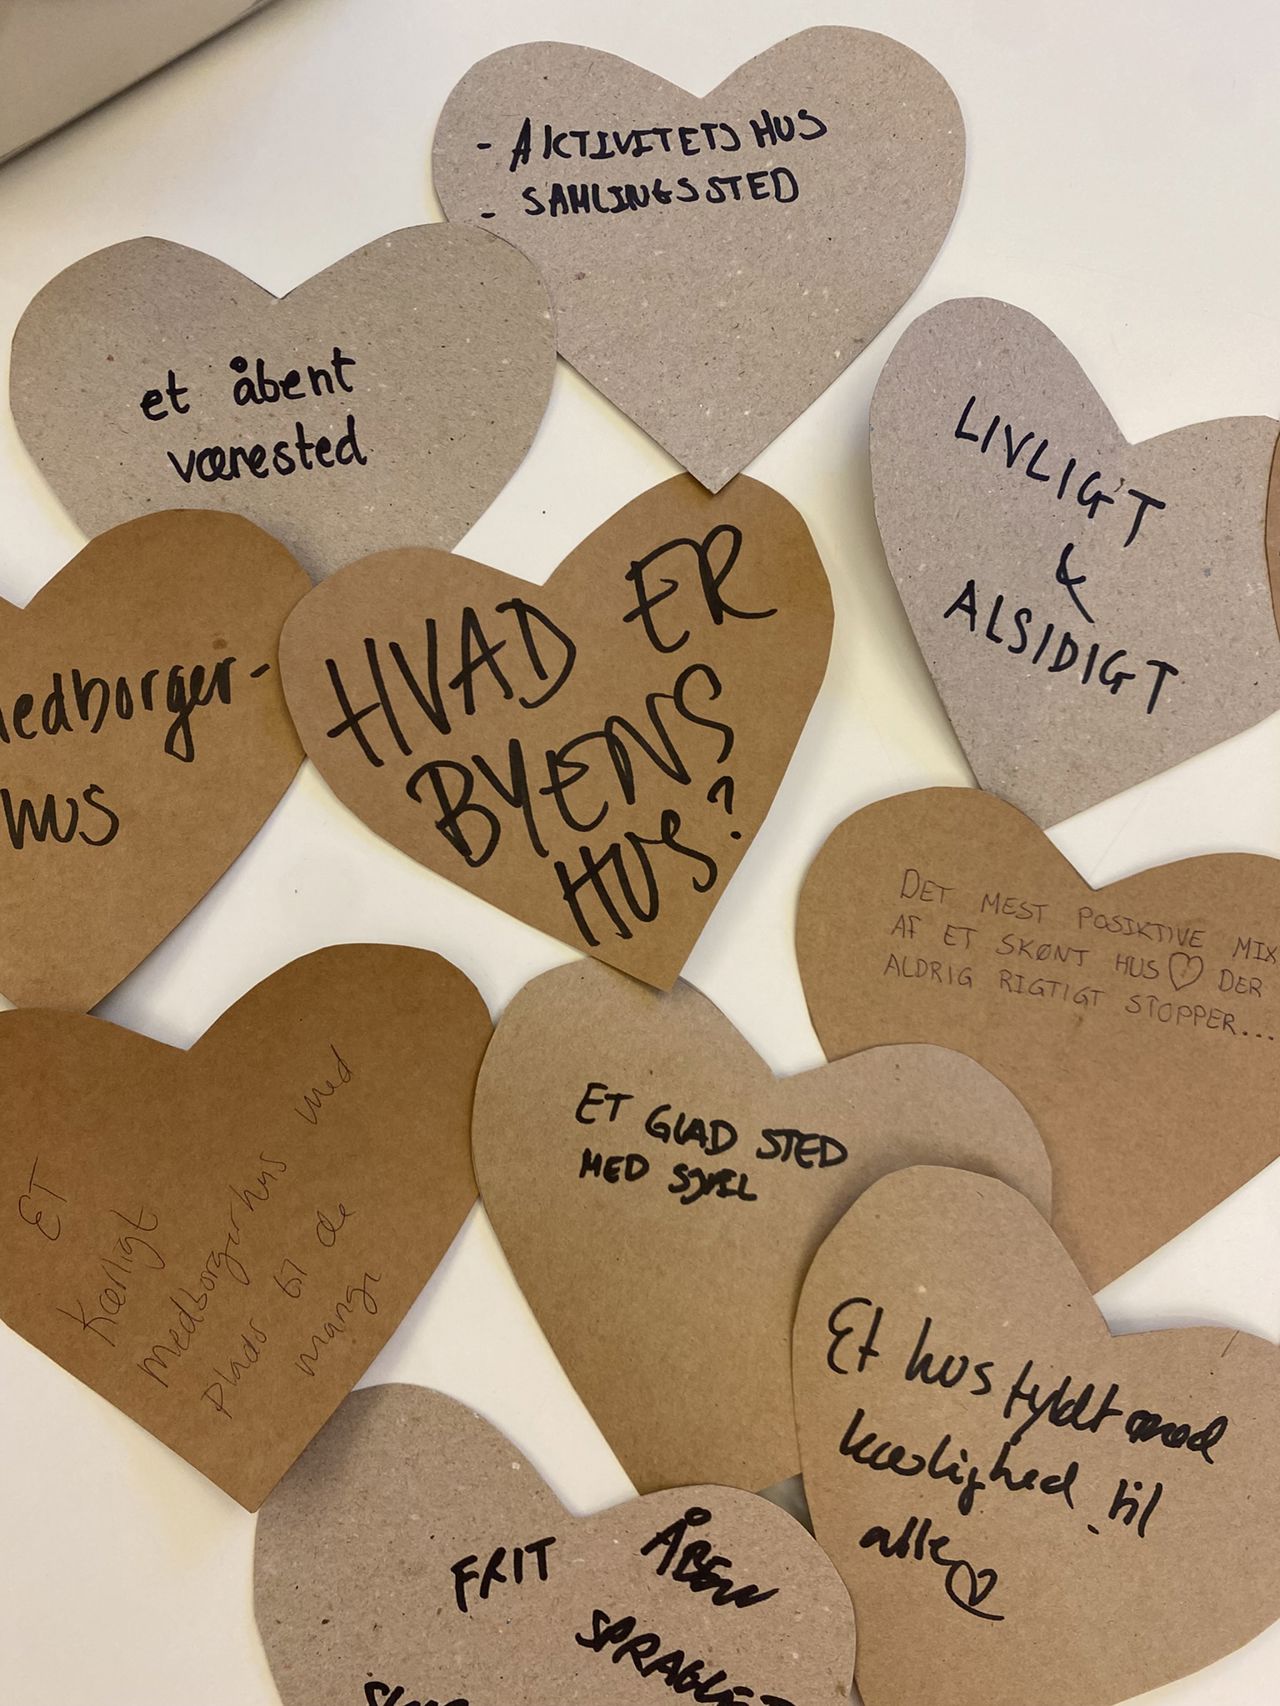 - AKTIVITETSHUS
- SAMLINGSSTED
et åbent
værested
LIVLIGT
&
ALSIDIGT
medborger-
hus
HVAD ER
BYENS
HUS?
DET MEST POSIKTIVE MIX
AF ET SKØNT HUS♡ DER
ALDRIG RIGTIGT STOPPER...
ET
Kærligt
medborgerhus med
plads til de
mange
ET GLAD STED
MED SJÆL
Et hus fyldt med
kærlighed til
alle♡
FRIT ÅBEN
SPRAGLET